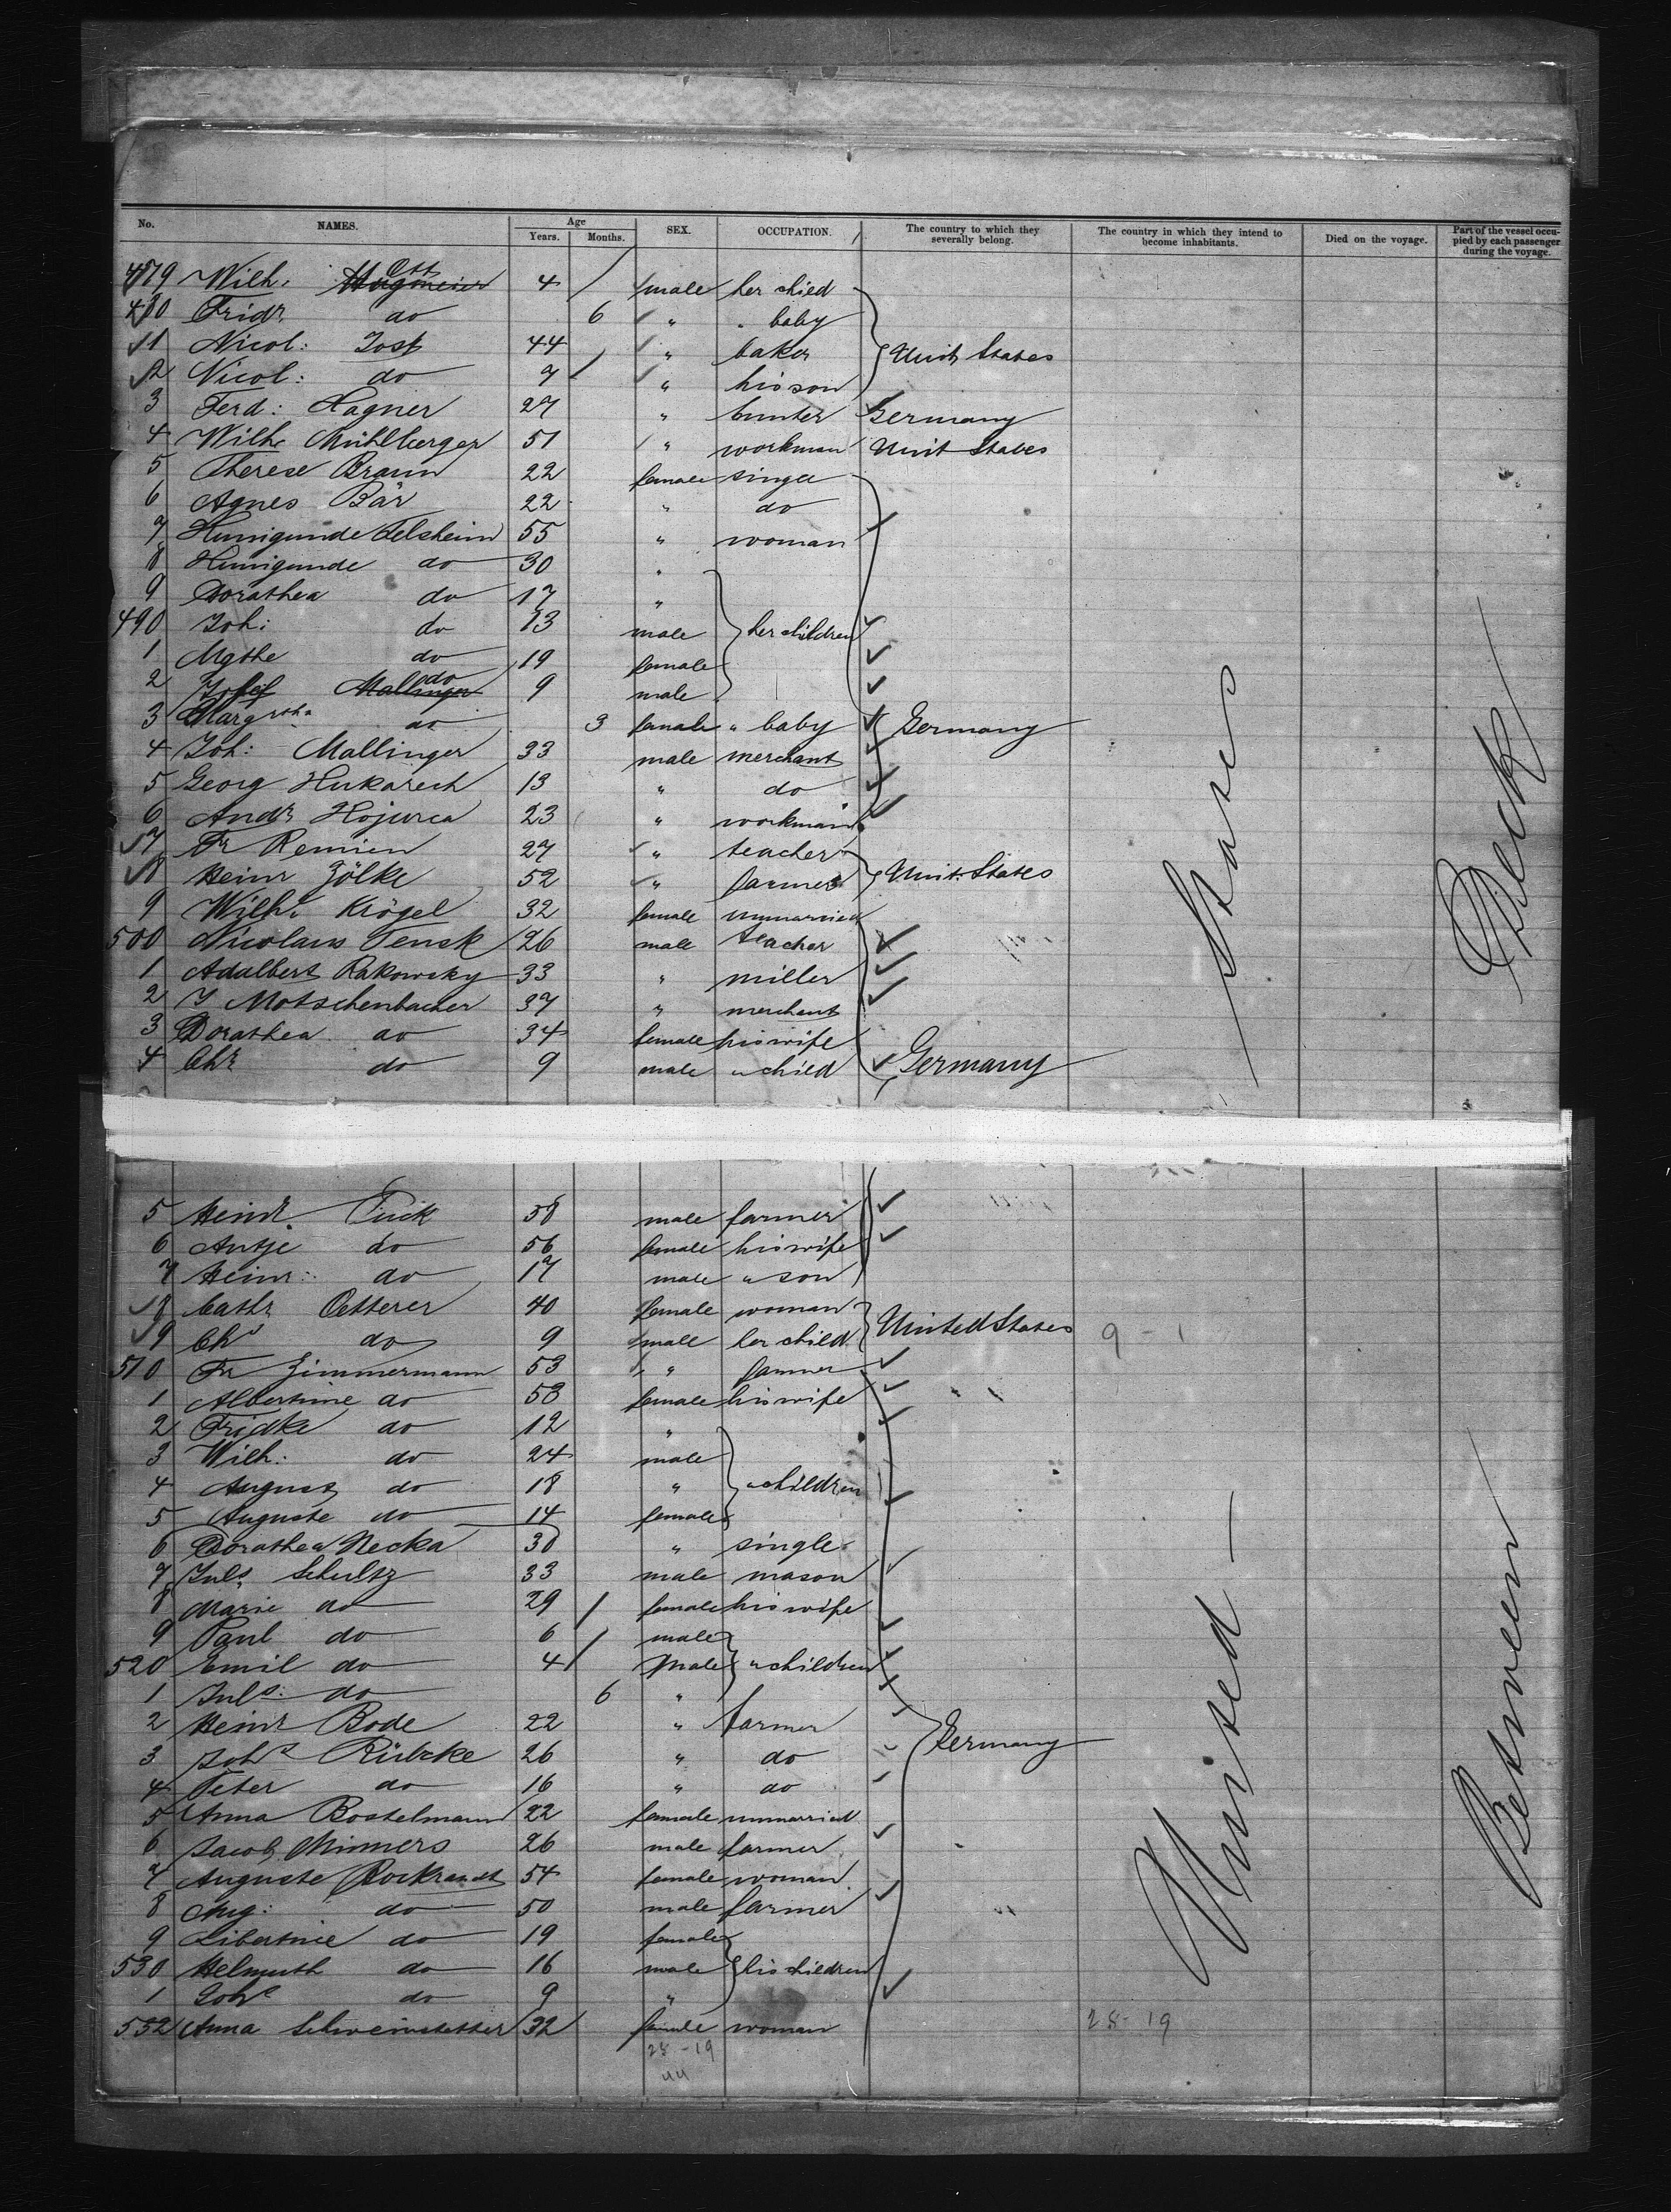 No. NAMES. Age Years. Months. SEX. OCCUPATION. The country to which they severally belong. The country in which they intend to become inhabitants. Died on the voyage. Part of the vessel occupied by each passenger during the voyage.
479 Wilh. Ott 4 male her child
480 Fridr. do 6 " " baby
1 Nicol: Jost 44 " baker Unit States
2 Nicol: do 7 " his son
3 Ferd: Hagner 27 " Germany
4 Wilh. Mühlberger 51 " workman Unit States
5 Therese Braun 22 female singel
6 Agnes Bär 22 " do
7 Kunigunde Felsheim 55 " woman
8 Kunigunde do 30 "
9 Dorathea do 17 "
490 Joh: do 13 male her children
1 Mgthe do 19 female
2 Josef Mallinger do 9 male
3 Margretha do 3 female " baby Germany
4 Joh: Mallinger 33 male merchant
5 Georg Hukarech 13 " do
6 Andr. Hojurca 23 " workman
7 Fr Remien 27 " teacher
8 Heinr Zölke 52 " farmer Unit. States
9 Wilhe Krögel 32 female unmarried
500 Nicolaus Tensk 26 male teacher
1 Adalbert Rakowsky 33 " miller
2 J Motschenbacher 37 " merchant
3 Dorathea do 34 female his wife
4 Chr do 9 male " child Germany
States
Deck
5 Heinr. Tück 58 male farmer
6 Antje do 56 female his wife
7 Heinr: do 17 male " son
8 Cathr Oetterer 40 female woman
9 Chs do 9 male her child United States 9 - 1
510 Fr Zimmermann 53 " farmer
1 Albertine do 53 female his wife
2 Fridke do 12 "
3 Wilh: do 24 male
4 August do 18 " " children
5 Auguste do 14 female
6 Dorathea Necka 30 " single
7 Juls Schultz 33 male mason
8 Marie do 29 female his wife
9 Paul do 6 male
520 Emil do 4 male " children
1 Juls: do 6 "
2 Heinr Bode 22 " farmer
3 Johs Rübcke 26 " do Germany
4 Peter do 16 " do
5 Anna Bostelmann 22 female unmarried
6 Jacob Minners 26 male farmer
7 Auguste Bockrandt 54 female woman
8 Aug: do 50 male farmer
9 Libertine do 19 female
530 Helmuth do 16 male his children
1 Johe do 9 "
532 Anna Schweinstetter 32 female woman 28-19
28-19
44
United
Between